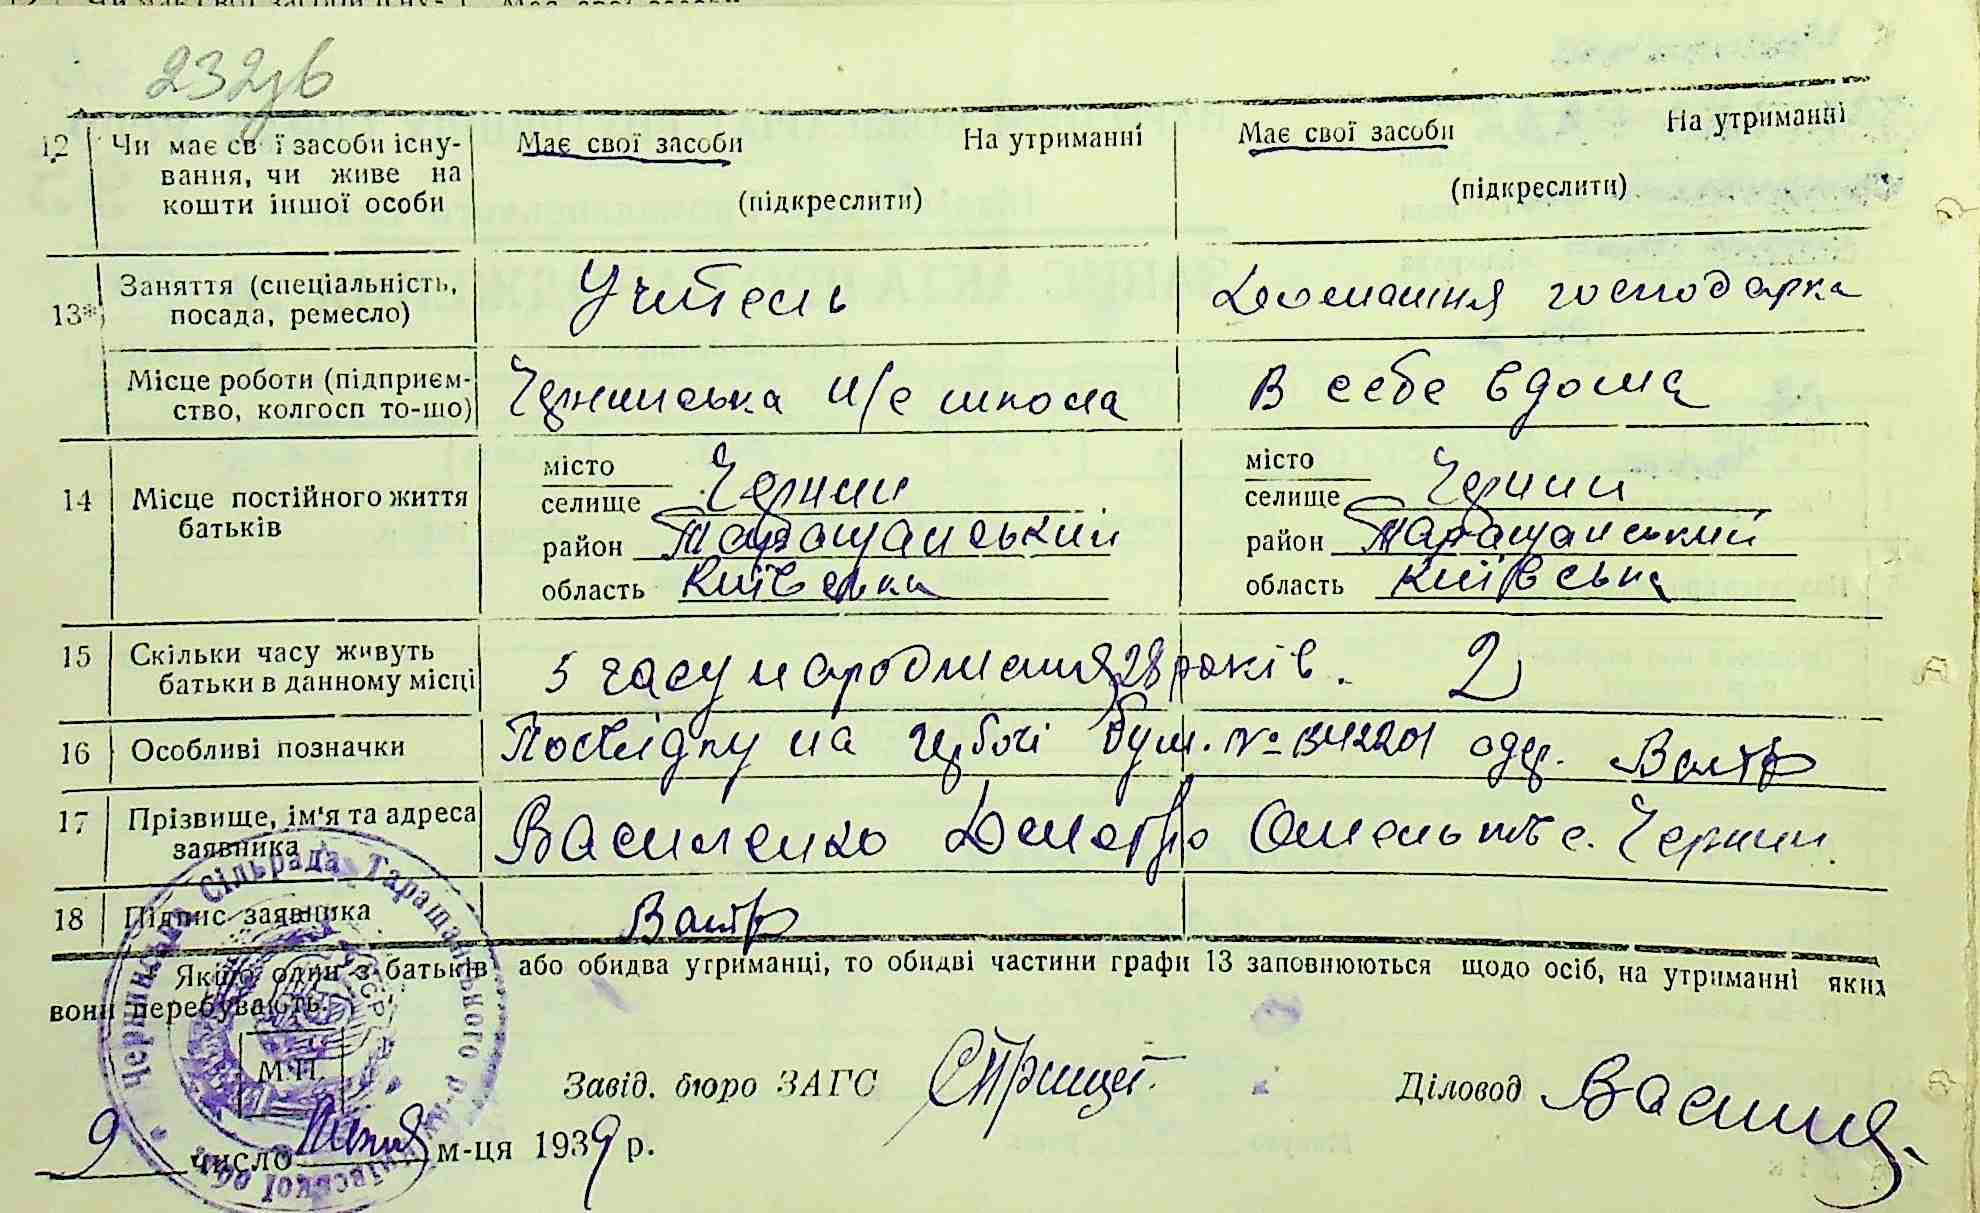 232зв
12 Чи має св ї засоби існу-
вання, чи живе на
кошти іншої особи
Має свої засоби На утриманні
(підкреслити)
Має свої засоби На утриманні
(підкреслити)
13*) Заняття (спеціальність,
посада, ремесло)
Учитель
Домашня господарка
Місце роботи (підприєм-
ство, колгосп то-що)
Чернинська н/с школа
В себе вдома
14 Місце постійного життя
батьків
місто
селище Черкин
район Таращанський
область Київська
місто
селище Чернин
район Таращанський
область Київська
15 Скільки часу живуть
батьки в данному місці
З часу народження 28 років. 2
16 Особливі позначки
Посвідку на
№ 1342201 одер.
17 Прізвище, ім'я та адреса
заявника
Василенко Дмитро с. Чернин
18 Підпис заявника
Якщо один з батьків або обидва утриманці, то обидві частини графи 13 заповнюються щодо осіб, на утриманні яких
вони перебувають.
М.П.
Завід. бюро ЗАГС
Діловод
9 число м-ця 1939 р.
Чернинська Сільрада Таращанського р-ну Київської обл.
УССР